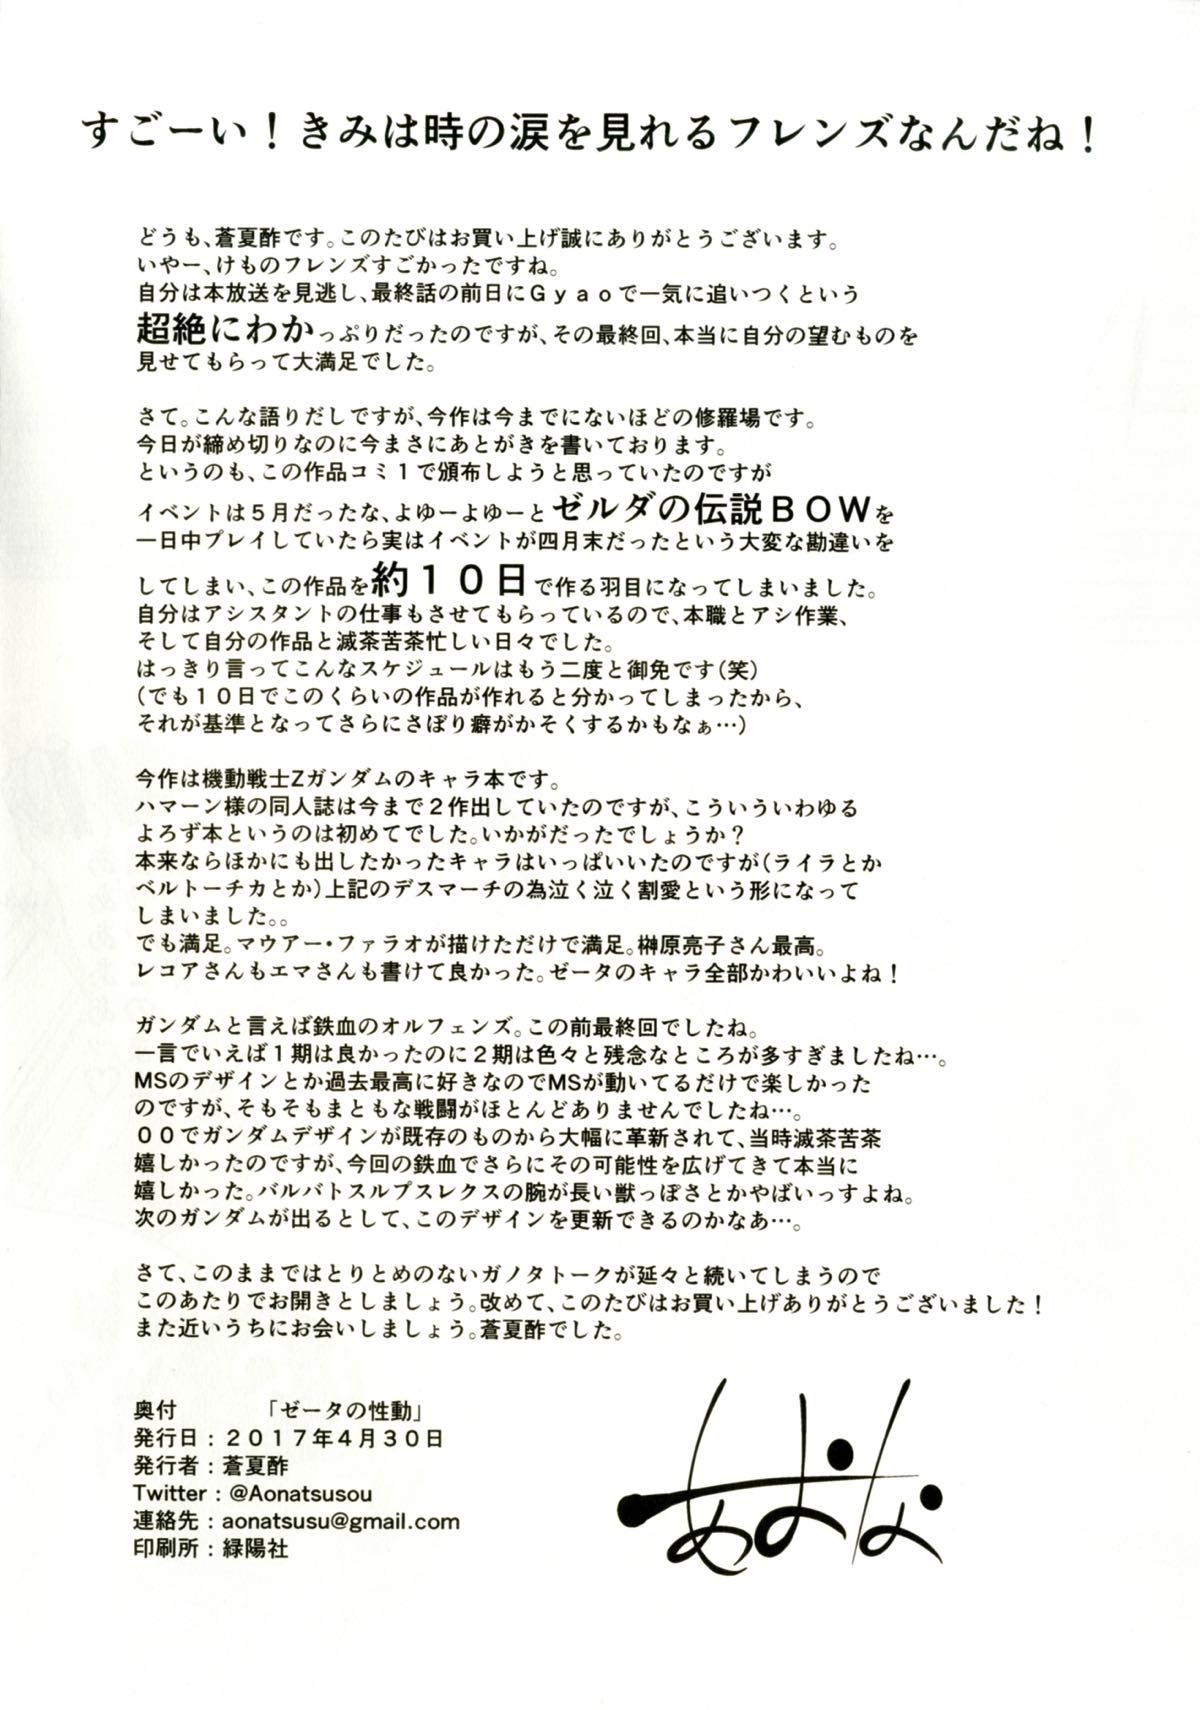 すごーい！きみは時の涙を見れるフレンズなんだね！
どうも、蒼夏酢です。このたびはお買い上げ誠にありがとうございます。
いやー、けものフレンズすごかったですね。
自分は本放送を見逃し、最終話の前日にＧｙａｏで一気に追いつくという
超絶にわかっぷりだったのですが、その最終回、本当に自分の望むものを
見せてもらって大満足でした。
さて。こんな語りだしですが、今作は今までにないほどの修羅場です。
今日が締め切りなのに今まさにあとがきを書いております。
というのも、この作品コミ１で頒布しようと思っていたのですが
イベントは５月だったな、よゆーよゆーとゼルダの伝説ＢＯＷを
一日中プレイしていたら実はイベントが四月末だったという大変な勘違いを
してしまい、この作品を約１０日で作る羽目になってしまいました。
自分はアシスタントの仕事もさせてもらっているので、本職とアシ作業、
そして自分の作品と滅茶苦茶忙しい日々でした。
はっきり言ってこんなスケジュールはもう二度と御免です（笑）
（でも１０日でこのくらいの作品が作れると分かってしまったから、
それが基準となってさらにさぼり癖がかそくするかもなぁ…）
今作は機動戦士Zガンダムのキャラ本です。
ハマーン様の同人誌は今まで２作出していたのですが、こういういわゆる
よろず本というのは初めてでした。いかがだったでしょうか？
本来ならほかにも出したかったキャラはいっぱいいたのですが（ライラとか
ベルトーチカとか）上記のデスマーチの為泣く泣く割愛という形になって
しまいました。。
でも満足。マウアー・ファラオが描けただけで満足。榊原亮子さん最高。
レコアさんもエマさんも書けて良かった。ゼータのキャラ全部かわいいよね！
ガンダムと言えば鉄血のオルフェンズ。この前最終回でしたね。
一言でいえば１期は良かったのに２期は色々と残念なところが多すぎましたね…。
MSのデザインとか過去最高に好きなのでMSが動いてるだけで楽しかった
のですが、そもそもまともな戦闘がほとんどありませんでしたね…。
００でガンダムデザインが既存のものから大幅に革新されて、当時滅茶苦茶
嬉しかったのですが、今回の鉄血でさらにその可能性を広げてきて本当に
嬉しかった。バルバトスルプスレクスの腕が長い獣っぽさとかやばいっすよね。
次のガンダムが出るとして、このデザインを更新できるのかなあ…。
さて、このままではとりとめのないガノタトークが延々と続いてしまうので
このあたりでお開きとしましょう。改めて、このたびはお買い上げありがとうございました！
また近いうちにお会いしましょう。蒼夏酢でした。
奥付　　　　「ゼータの性動」
発行日：２０１７年４月３０日
発行者：蒼夏酢
Twitter：@Aonatsusou
連絡先：aonatsusu@gmail.com
印刷所：緑陽社